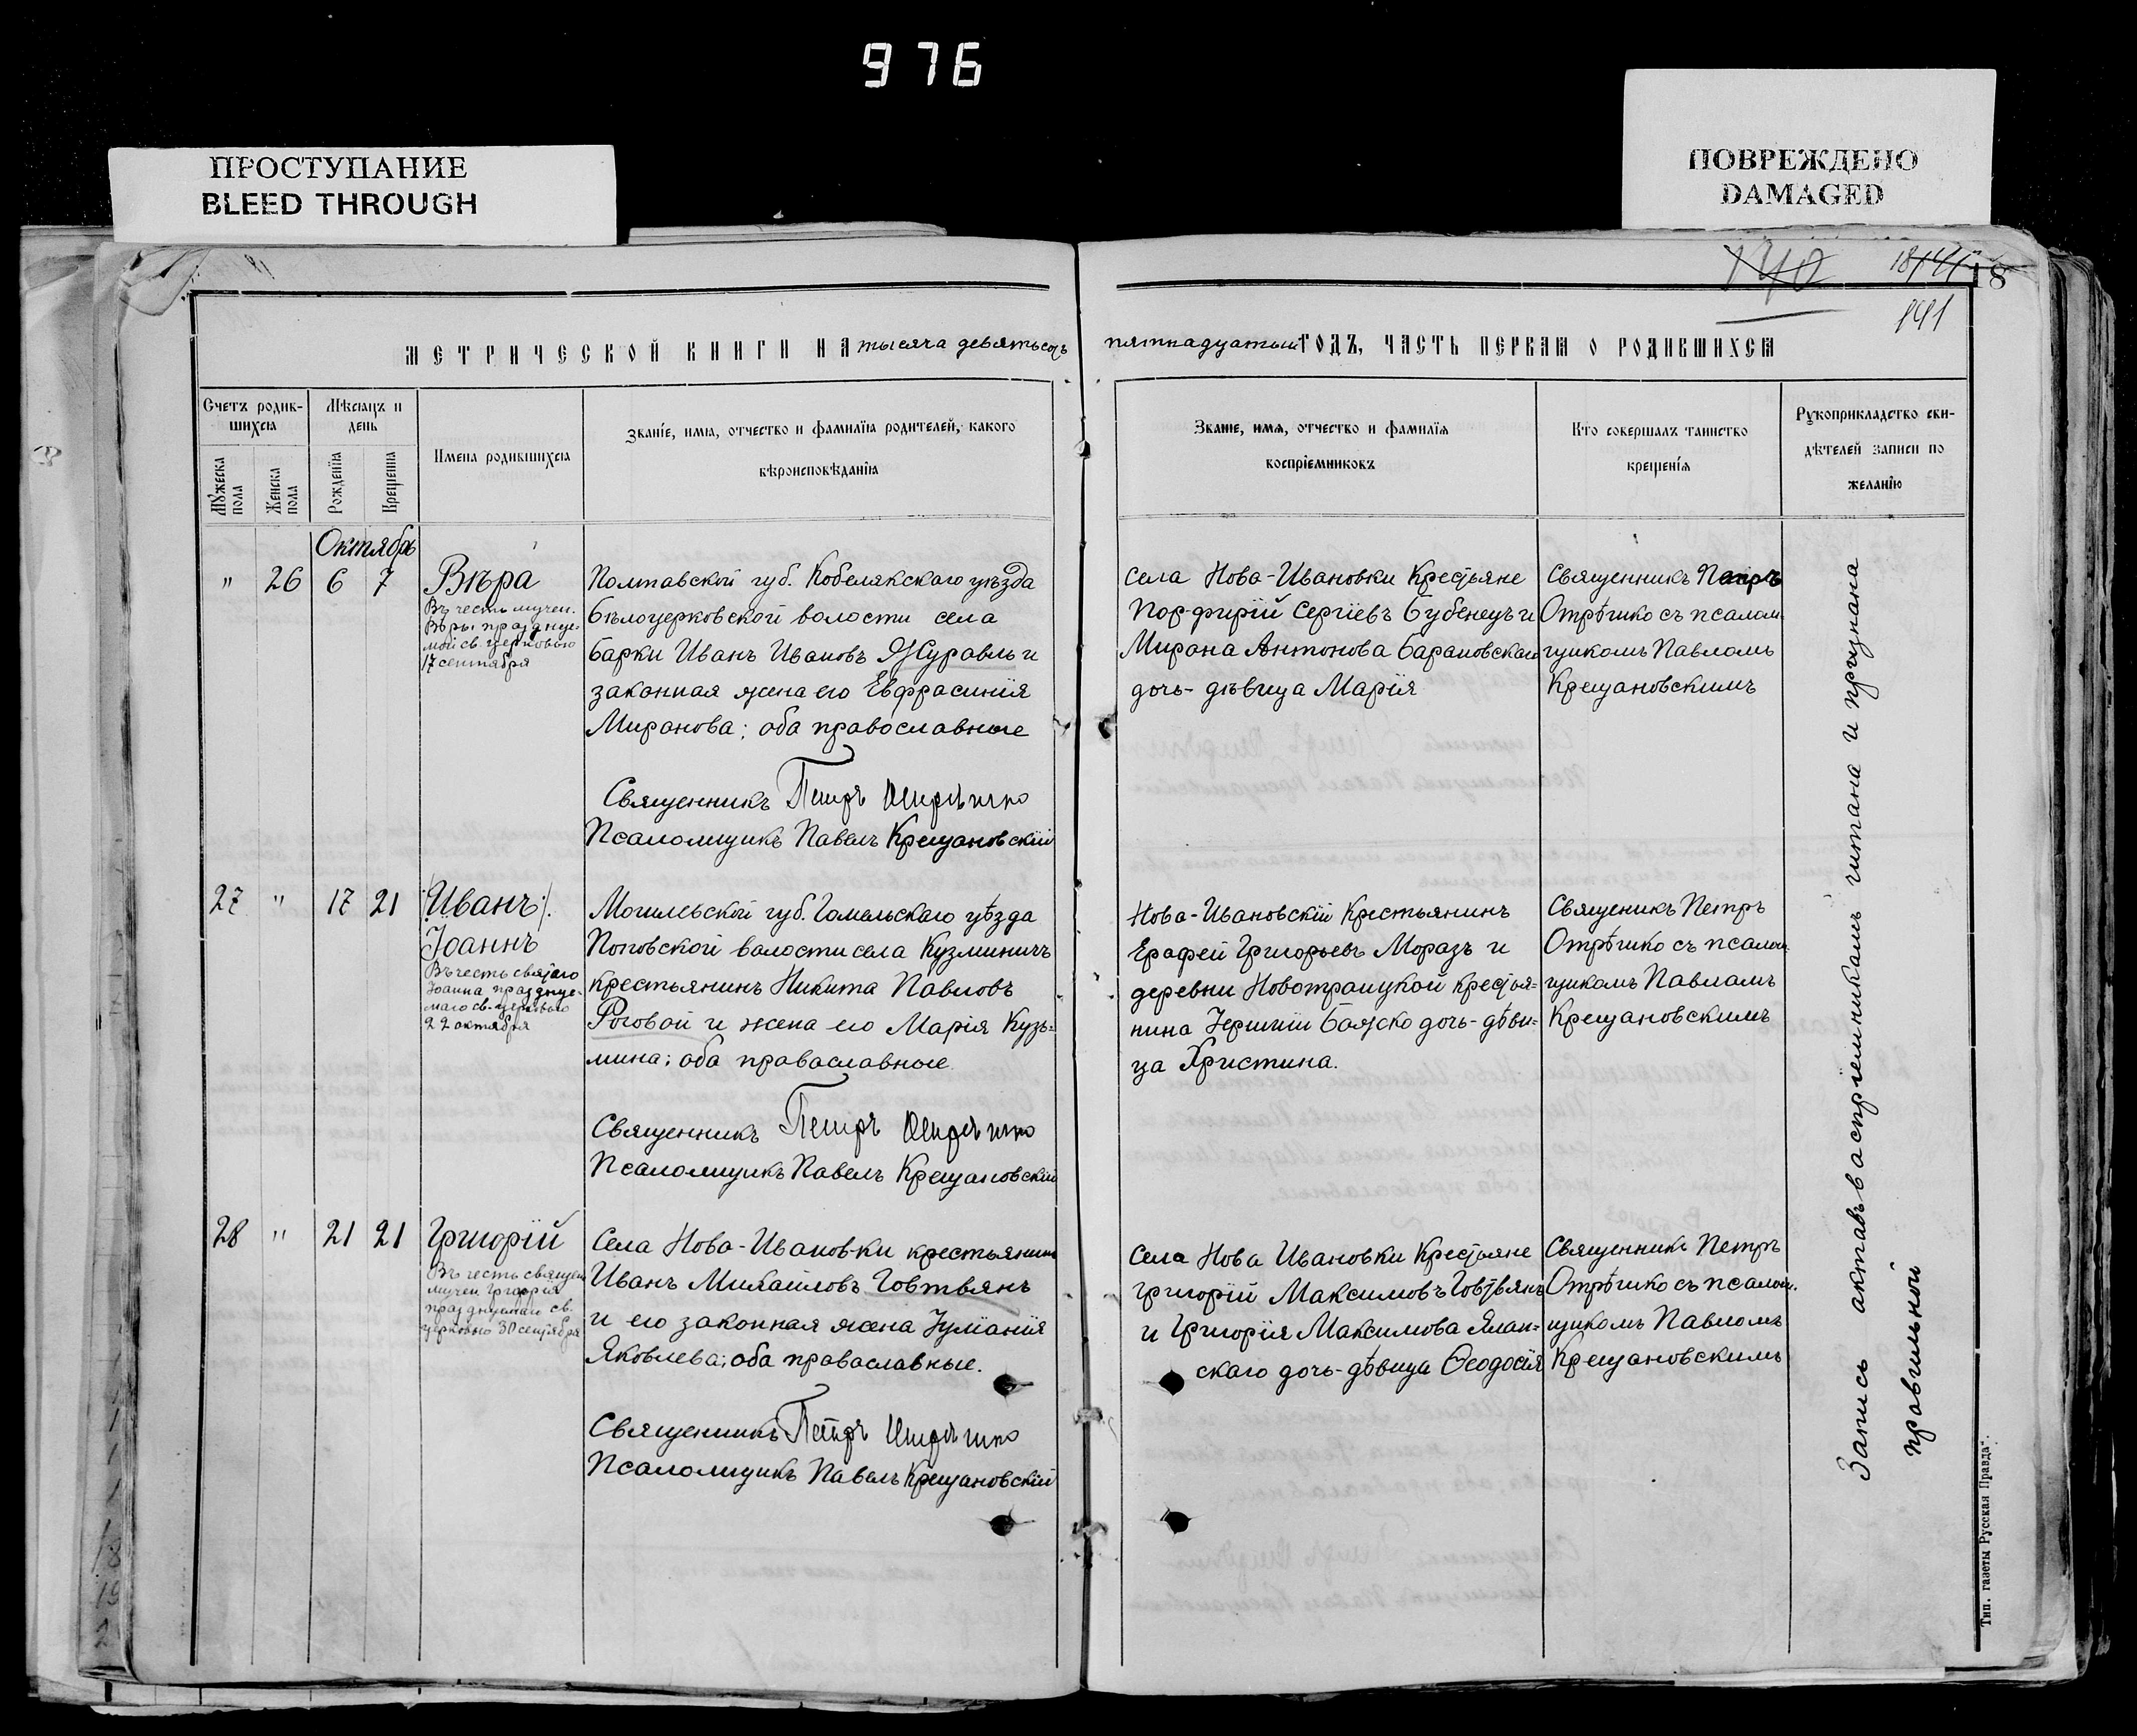 976
ПРОСТУПАНИЕ
BLEED THROUGH
ПОВРЕЖДЕНО
DAMAGED
140
18
141
МЕТРИЧЕСКОЙ КНИГИ НА тысяча девятьсотъ пятнадцатый ГОДЪ, ЧАСТЬ ПЕРВАЯ О РОДИВШИХСЯ
Счетъ родив-
шихся
Мѣсяцъ и
день
Мужеска
пола
Женска
пола
Рожденія
Крещенія
Имена родившихся
Званіе, имя, отчество и фамилія родителей, какого
вѣроисповѣданія
Званіе, имя, отчество и фамилія
воспріемниковъ
Кто совершалъ таинство
крещенія
Рукоприкладство сви-
дѣтелей записи по
желанію
Октябрь
" 26 6 7
Вѣра
Въ честь мучен.
Вѣры празднуе-
мой св. церковью
17 сентября
Полтавской губ. Кобелякскаго уѣзда
Бѣлоцерковской волости села
Барки Иванъ Ивановъ Журавль и
законная жена его Евфрасинія
Миранова; оба православные
Священникъ Петръ Отрѣшко
Псаломщикъ Павелъ Крещановскій
Села Нова-Ивановки Крестьяне
Порфирій Сергіевъ Бубенецъ и
Мирона Антонова Барановскаго
дочь-дѣвица Марія
Священникъ Петръ
Отрѣшко съ псалом-
щикомъ Павломъ
Крещановскимъ
27 " 17 21
/Иванъ/.
Іоаннъ
Въ честь святаго
Іоанна празднуе-
маго св. церковью
22 октября
Могилевской губ. Гомельскаго уѣзда
Поповской волости села Кузминичъ
крестьянинъ Никита Павловъ
Роговой и жена его Марія Кузь-
мина; оба праваславные
Священникъ Петръ Отрѣшко
Псаломщикъ Павелъ Крещановскій
Нова-Ивановскій Крестьянинъ
Ерафей Григорьевъ Моразъ и
деревни Новотраицкой крестья-
нина дочь-дѣви-
ца Христина.
Священикъ Петръ
Отрѣшко съ псалом-
щикомъ Павламъ
Крещановскимъ
28 " 21 21
Григорій
Въ честь священ
мучен Григорія
св.
церковью 30 сентября
Села Нова-Ивановки крестьянинъ
Иванъ Михайловъ Говтвянъ
и его законная жена Іуліанія
Яковлева; оба праваславные.
Священникъ Петръ Отрѣшко
Псаломщикъ Павелъ Крещановскій
Села Нова Ивановки Крестьяне
Григорій Максимовъ Говтвянъ
и Григорія Максимова Ялан-
скаго дочь-дѣвица Ѳеодосія
Священникъ Петръ
Отрѣшко съ псалом-
щикомъ Павломъ
Крещановскимъ
Запись актавъ васпріемникамъ читана и признана
правильной
Тип. газеты „Русская Правда".